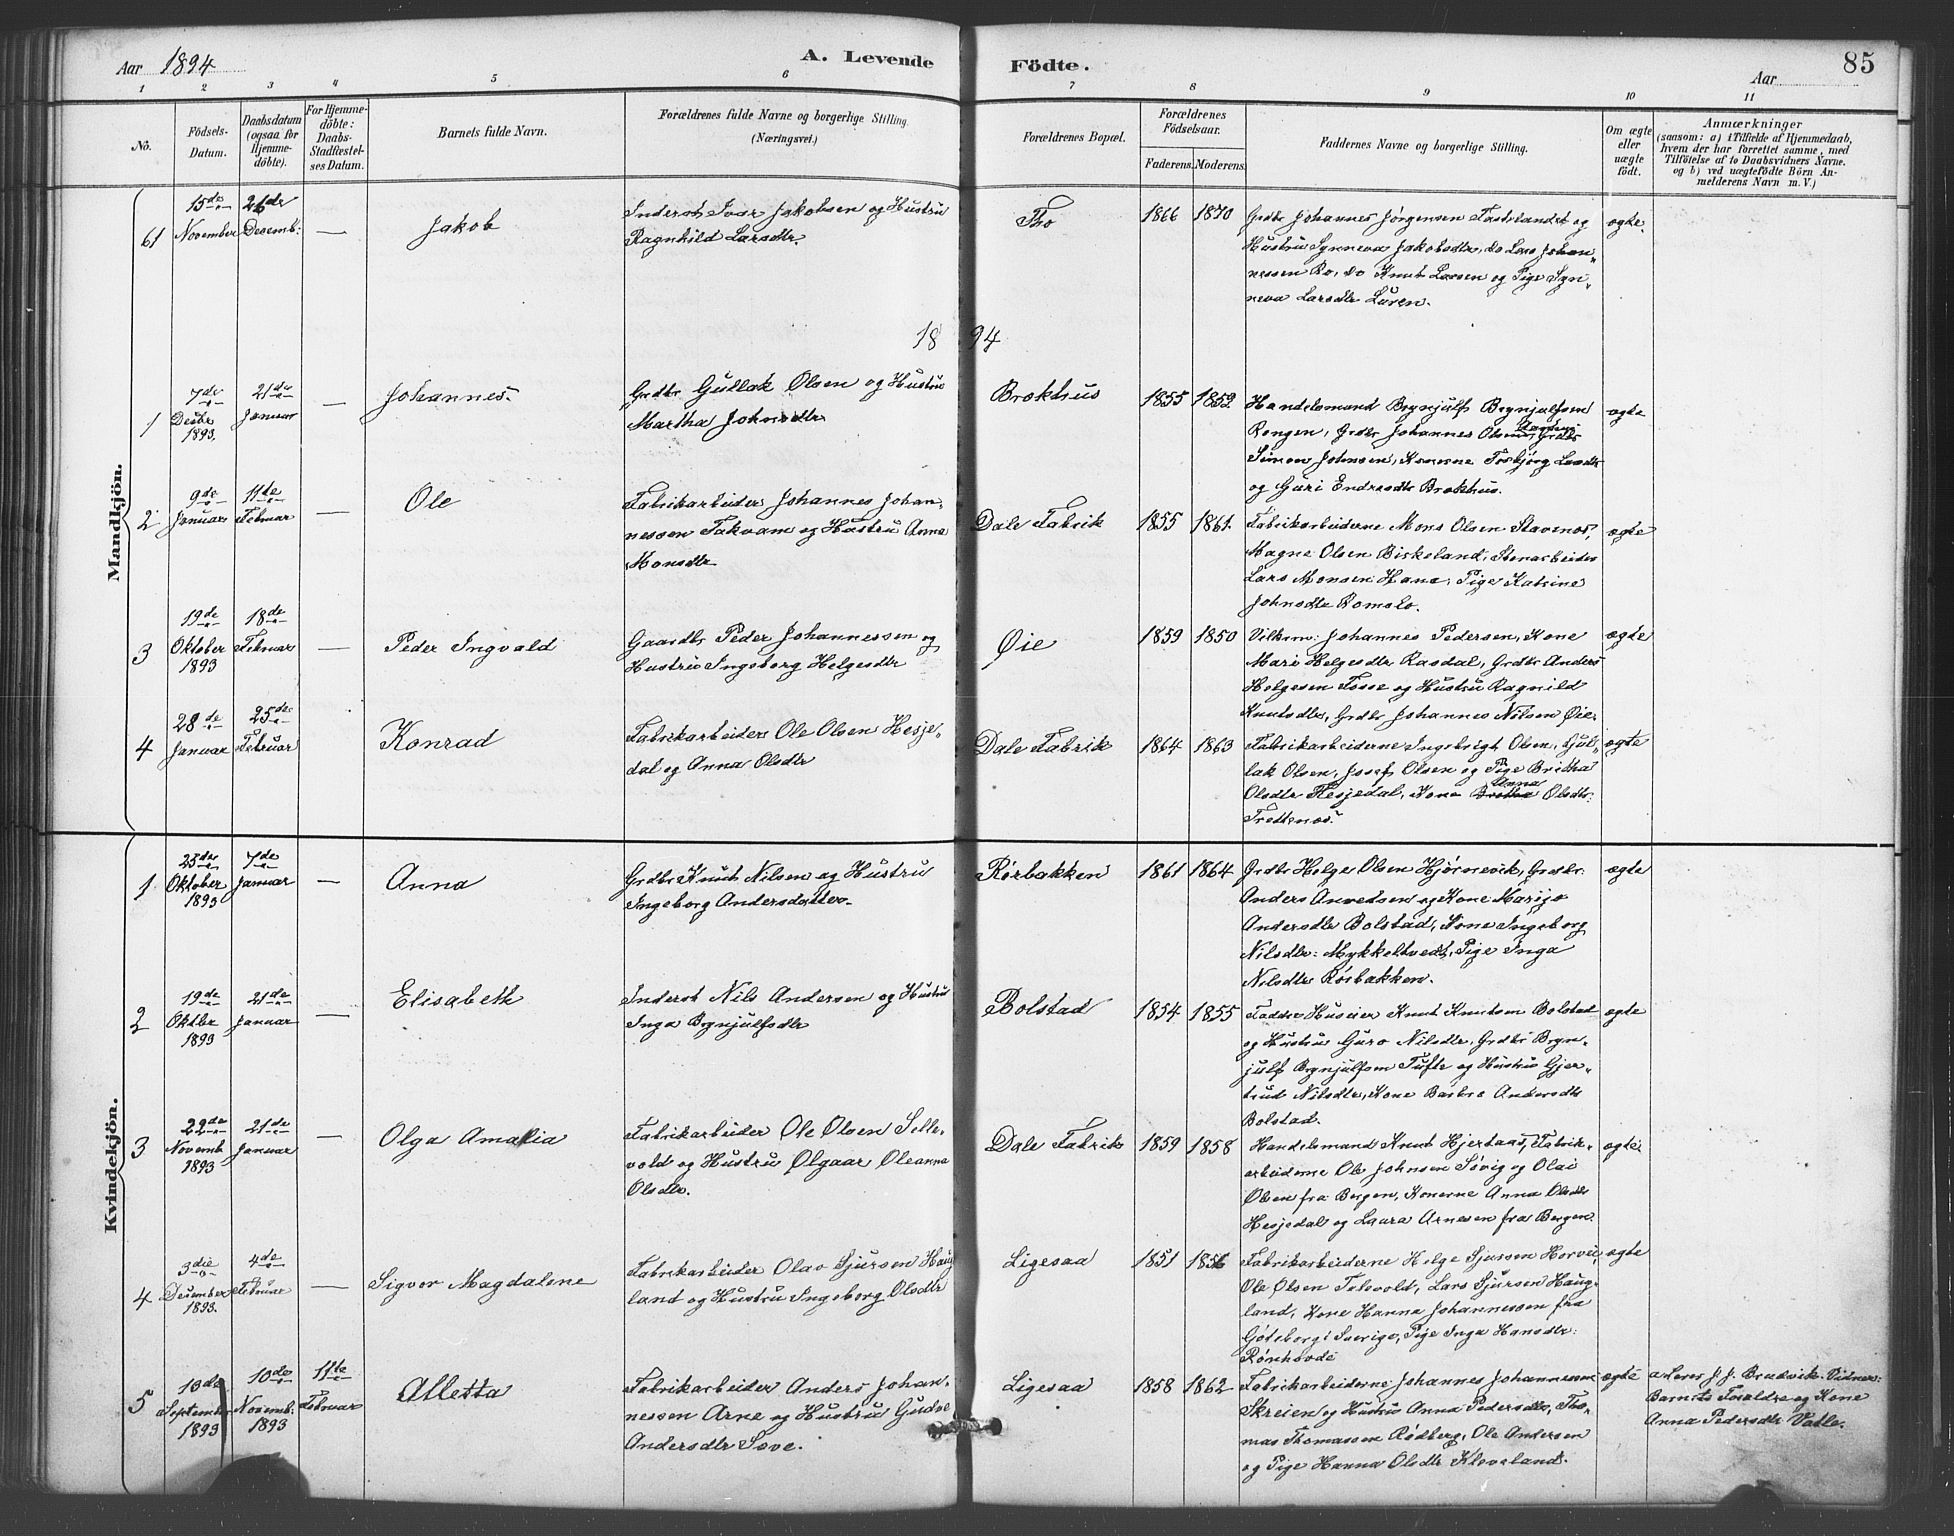 Aar 1894
A. Levende
Födte.
Aar
85
1 2 3 4 5 6 7 8 9 10 11
No.
Födsels-
Datum.
Daabsdatum
(ogsaa for
Hjemme-
döbte).
For Hjemme-
döbte:
Daabs-
Stadfæstel-
ses Datum.
Barnets fulde Navn.
Forældrenes fulde Navne og borgerlige Stilling.
(Næringsvei.)
Forældrenes Bopæl.
Forældrenes
Födselsaar.
Faderens. Moderens.
Faddernes Navne og borgerlige Stilling.
Om ægte
eller
uægte
födt.
Anmærkninger
(saasom: a) i Tilfælde af Hjemmedaab,
hvem der har forrettet samme, med
Tilföielse af to Daabsvidners Navne.
og b) ved uægtefödte Börn An-
melderens Navn m. V.)
Mandkjön.
61
15de
November
Decemb:
—
Jakob
Inderst Ivar Jakobsen og Hustru
Ragnhild Larsdtr.
Tho
1866 1870
Grdbr Johannes Jørgensen Fadnlandet og
Hustru Synneva Jakobsdtr, do Lars Johan-
nessen Ro, do Knut Larsen og Pige Syn-
neva Larsdtr Luren.
ægte.
1894
1
7de
Decbr
1893.
21de
Januar
—
Johannes.
Grdbr Gullak Olsen og Hustru
Martha Johnsdtr
Brokhus
1855 1859.
Handelsmand Brynjulf Brynjulfsen
Rongen, Grdbr Johannes Olsen, Grdbr
Simon Johnsen, Konerne Torbjørg Larsdtr
og Guri Endresdtr Brokhus.
ægte
2
9de
Januar
11te
Februar
—
Ole
Fabrikarbeider Johannes Johan-
nessen Takvam og Hustru Anna
Monsdtr
Dale Fabrik
1855 1861.
Fabrikarbeiderne Mons Olsen Stavenes,
Magne Olsen Birkeland, Stenarbeider
Lars Monsen Hane, Pige Katrine
Johnsdtr Romslo.
ægte
3
19de
Oktober
1893
18de
Februar
—
Peder Ingvald
Gaardbr Peder Johannessen og
Hustru Ingeborg Helgesdtr
Øie
1859 1850
Vilkrm: Johannes Pedersen, Kone
Mari Helgesdtr Rasdal, Grdbr Anders
Helgesen Fosse og Hustru Ragnild
Knutsdtr, Grdbr Johannes Nilsen Øie.
ægte
4
28de
Januar
25de
Februar
Konrad
Fabrikarbeider Ole Olsen Hesje-
dal og Anna Olsdtr
Dale Fabrik
1864 1863
Fabrikarbeiderne Ingebrigt Olsen, Gjul-
lak Olsen, Josef Olsen og Pige Britha
Olsdtr Hesjedal, Kone Anna Olsdtr:
Trettenes.
ægte
Kvindekjön.
1
23de
Oktober
1893
7de
Januar
—
Anna
Grdbr Knut Nilsen og Hustru
Ingeborg Andersdatter.
Rørbakken
1861 1864
Grdbr Helge Olsen Hjørnevik, Grdbr:
Anders Anvedsen og Kone Marijo
Andersdtr Bolstad, Kone Ingeborg
Nilsdtr: Mykkeltvedt, Pige Inga
Nilsdtr Rørbakken.
ægte
2
19de
Oktbr
1893
21de
Januar
—
Elisabeth
Inderst Nils Andersen og Hustru
Inga Brynjulfsdtr
Bolstad
1854 1855
Fadder Huseier Knut Knutsen Bolstad
og Hustru Guro Nilsdtr, Grdbr Bryn-
julf Brynjulfsen Tufte og Hustru Gjer-
trud Nilsdtr, Kone Barbro Andersdtr
Bolstad.
ægte
3
22de
Novemb
1893
21de
Januar
—
Olga Amalia
Fabrikarbeider Ole Olsen Selle-
vold og Hustru Olgaar Oleanna
Olsdtr.
Dale Fabrik
1859 1858
Handelsmand Knut Hjertaas, Fabrik-
arbeiderne Ole Johnsen Søvig og Olai
Olsen fra Bergen, Konerne Anna Olsdtr
Hesjedal og Laura Arnesen fra Bergen.
ægte
4
3die
December
1893.
4de
Februar
—
Sigvor Magdalene
Fabrikarbeider Olav Sjursen Haug
land og Hustru Ingeborg Olsdtr
Ligesaa
1851 1856
Fabrikarbeiderne Helge Sjursen Horvei,
Ole Olsen Selevold, Lars Sjursen Haug-
land, Kone Hanna Johannessen fra
Göteborg i Sverige, Pige Inga Hansdtr:
Rønhovde
ægte
5
13de
September
1893
10de
Novemb:
1893
11te
Februar
Alletta
Fabrikarbeider Anders Johan-
nessen Arne og Hustru
Andersdtr Søve.
Ligesaa
1858 1862
Fabrikarbeiderne Johannes Johannessen
Skreien og Hustru Anna Pedersdtr, Tho-
mas Thomassen Rødberg, Ole Andersen
og Pige Hanna Olsdtr Kloveland.
ægte
a. Lærer J. J. Brudvik. Vidner:
Barnets Forældre og Kone
Anna Pedersdtr Vatle.